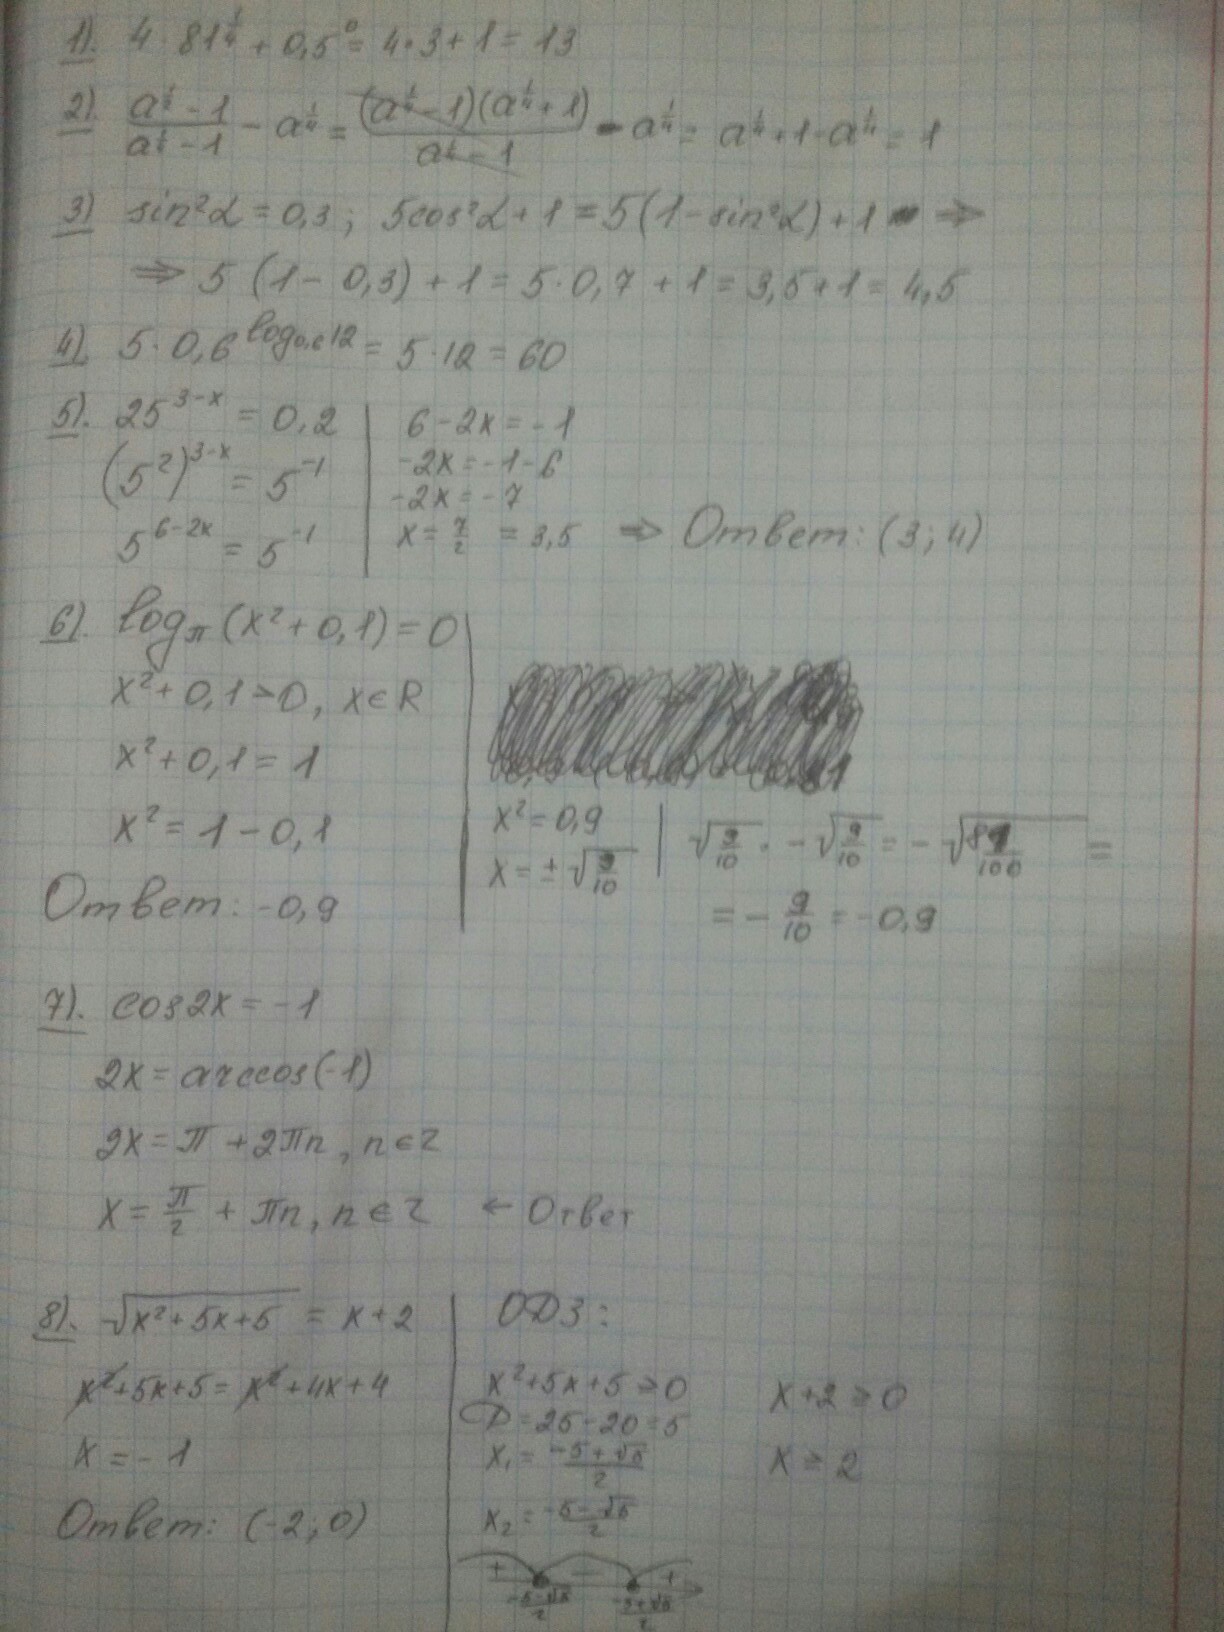 1). 4 · 81^{1/4} + 0,5^0 = 4·3 + 1 = 13
2) \frac{a^{1/2} - 1}{a^{1/4} - 1} - a^{1/4} = \frac{(a^{1/4} - 1)(a^{1/4} + 1)}{a^{1/4} - 1} - a^{1/4} = a^{1/4} + 1 - a^{1/4} = 1
3) sin²α = 0,3 ; 5cos²α + 1 = 5(1 - sin²α) + 1 ⇒
⇒ 5 (1 - 0,3) + 1 = 5·0,7 + 1 = 3,5 + 1 = 4,5
4) 5·0,6^{log_{0,6}12} = 5·12 = 60
5). 25^{3-x} = 0,2
(5²)^{3-x} = 5^{-1}
5^{6-2x} = 5^{-1}
6 - 2x = -1
-2x = -1 - 6
-2x = -7
x = \frac{7}{2} = 3,5 ⇒ Ответ: (3; 4)
6). log_π (x² + 0,1) = 0
x² + 0,1 > 0, x ∈ R
x² + 0,1 = 1
x² = 1 - 0,1
x² = 0,9
x = ± √\frac{9}{10}
√\frac{9}{10} · -√\frac{9}{10} = -√\frac{81}{100} =
= -\frac{9}{10} = -0,9
Ответ: -0,9
7). cos2x = -1
2x = arccos(-1)
2x = π + 2πn, n ∈ Z
x = \frac{π}{2} + πn, n ∈ Z ← Ответ
8). √x² + 5x + 5 = x + 2
x² + 5x + 5 = x² + 4x + 4
x = -1
Ответ: (-2; 0)
ОДЗ:
x² + 5x + 5 ≥ 0
D = 25 - 20 = 5
x₁ = \frac{-5 + √5}{2}
x₂ = \frac{-5 - √5}{2}
+ - +
\frac{-5 - √5}{2} \frac{-5 + √5}{2}
x + 2 ≥ 0
x ≥ 2